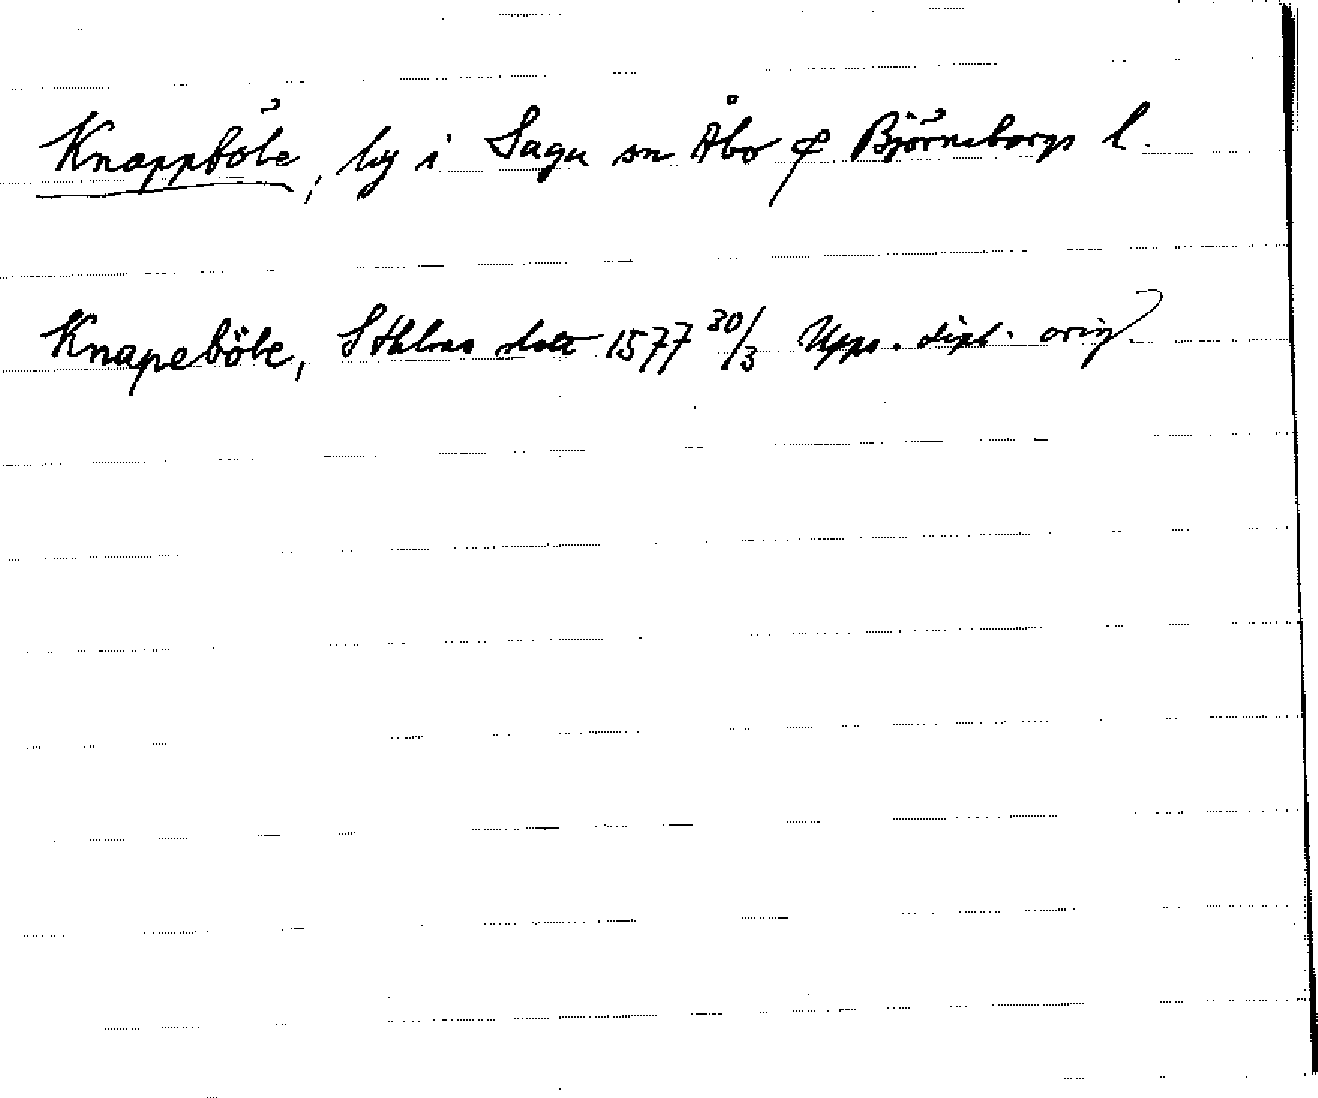 Knappböle, by i Sagu sn Åbo & Björneborgs l.
Knapeböle, Sthlms slott 1577 30/3 Upps. dipl. orig.